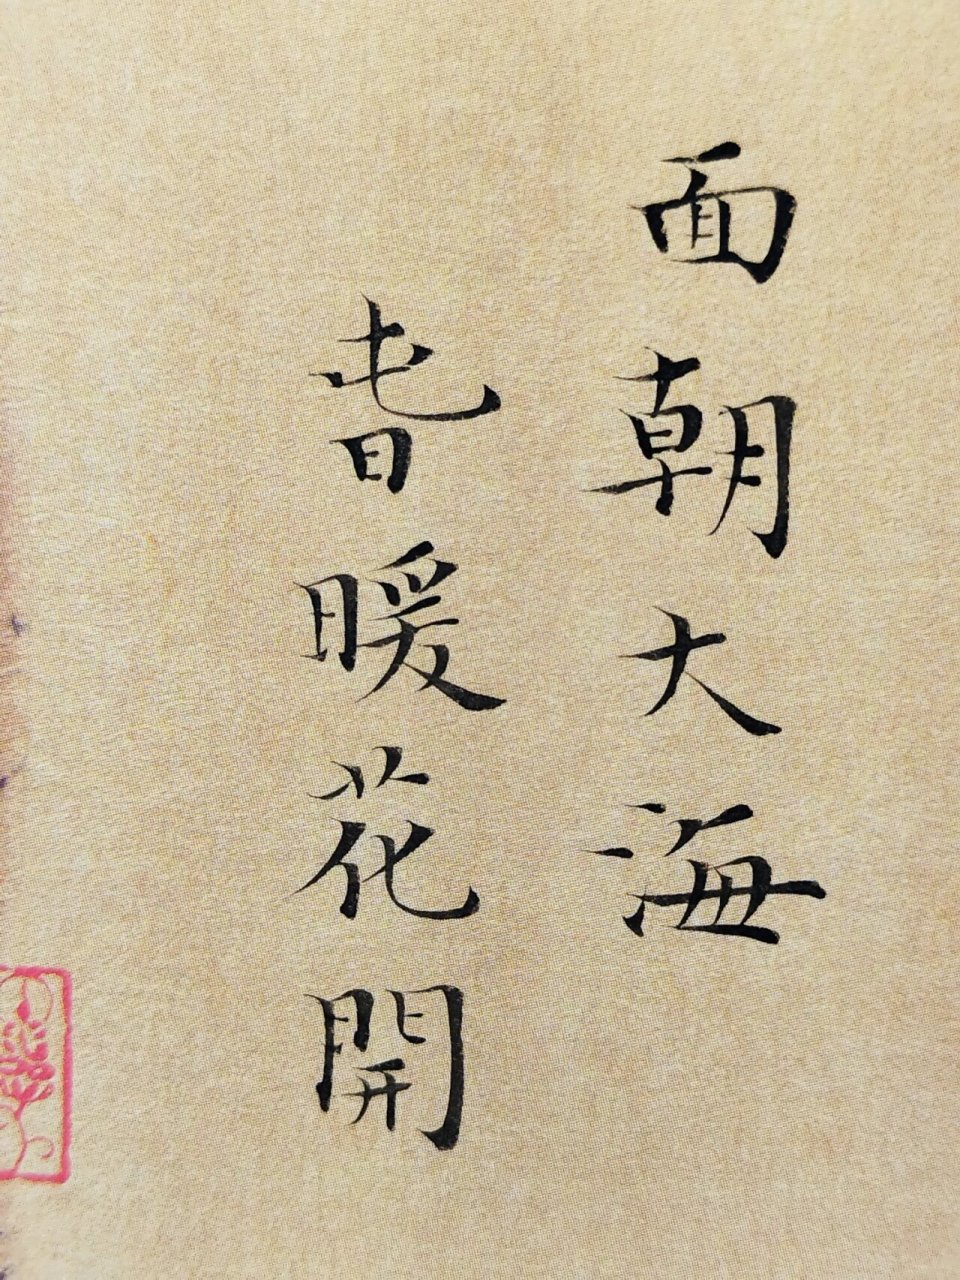 面朝大海
旾暖花開